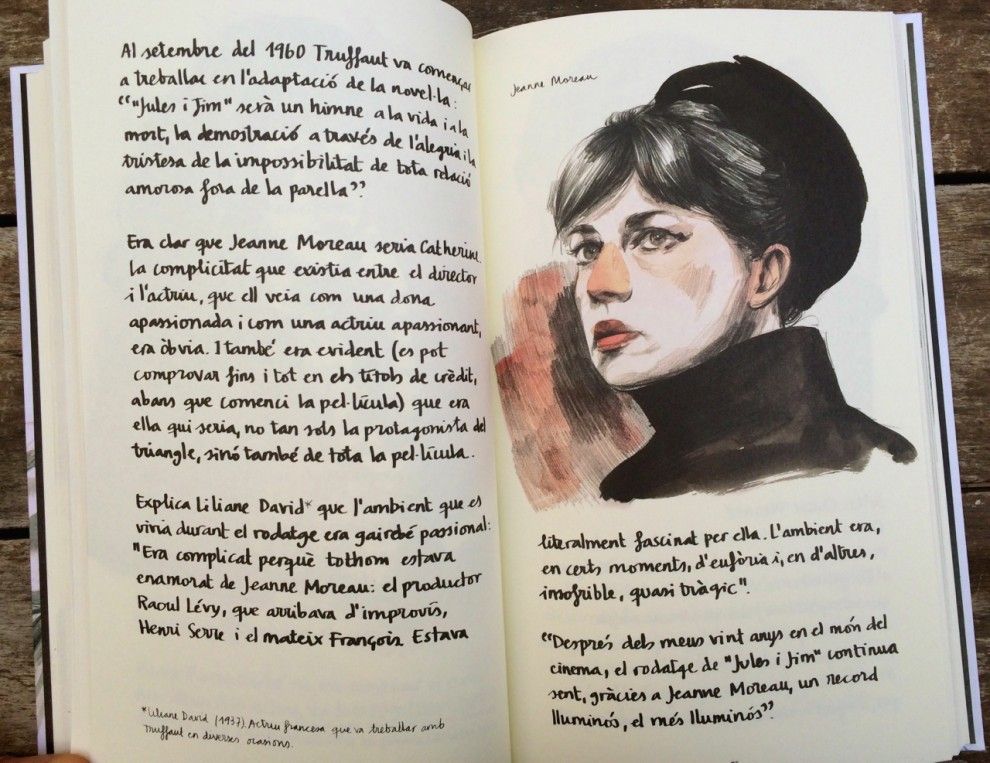 Al setembre del 1960 Truffaut va començar
a treballar en l'adaptació de la novel·la:
“"Jules i Jim" serà un himne a la vida i a la
mort, la demostració a través de l'alegria i la
tristesa de la impossibilitat de tota relació
amorosa fora de la parella”
Era clar que Jeanne Moreau seria Catherine.
la complicitat que existia entre el director
i l'actriu, que ell veia com una dona
apassionada i com una actriu apassionant,
era òbvia. I també era evident (es pot
comprovar fins i tot en els títols de crèdit,
abans que comenci la pel·lícula) que era
ella qui seria, no tan sols la protagonista del
triangle, sinó també de tota la pel·lícula.
Explica Liliane David* que l'ambient que es
vivia durant el rodatge era gairebé passional:
"Era complicat perquè tothom estava
enamorat de Jeanne Moreau: el productor
Raoul Lévy, que arribava d'improvís,
Henri Serre i el mateix François. Estava
*Liliane David (1937). Actriu francesa que va treballar amb
Truffaut en diverses ocasions.
Jeanne Moreau
literalment fascinat per ella. L'ambient era,
en certs moments, d'eufòria i, en d'altres,
insofrible, quasi tràgic".
“Després dels meus vint anys en el món del
cinema, el rodatge de "Jules i Jim" continua
sent, gràcies a Jeanne Moreau, un record
lluminós, el més lluminós”